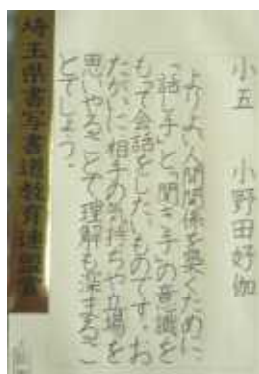 小五　小野田好伽
よりよい人間関係を築くために
「話し手」と「聞き手」の意識を
もって会話をしたいものです。お
たがいに相手の気持ちや立場を
思いやることで理解も深まるこ
とでしょう。
埼玉県書写書道教育連盟賞